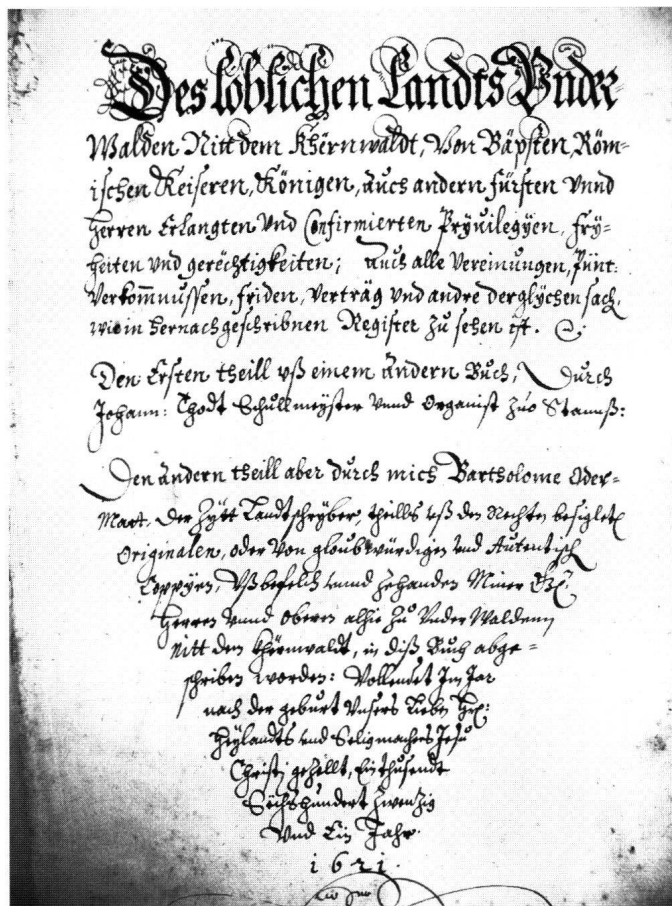 Des loblichen Landts Under-
Walden Nitt dem Khërnwaldt, Von Bäpsten, Röm-
ischen Keiseren, Königen, auch andern fürsten Vnnd
herren Erlangten Vnd Confirmierten Pryuilegyen, fry-
heiten vnd gerechtigkeiten; auch alle Vereinungen, Pünt:
Verkomnussen, friden, Verträg vnd andre derglychen sach,
wie in hernachgeschribnen Register zu sehen ist.
Den Ersten theill vß einem andern Buch, Durch
Johann: Thodt Schullmeyster vnnd Organist zuo Stannß:
Den andern theill aber durch mich Bartholome Oder-
Mart, Der Zytt Landtschryber, theills vß den Rechten besiglete
Originalen, oder von gloubwürdigen vnd Autentisch
Coppyen, Vß befelch vnnd zehanden Miner
Herren vnnd oberen alhie zu Vnder Waldenn
nitt dem khërnwaldt, in diß Buch abge-
schriben worden: Vollendet Im Jar
nach der geburt Vnsers Lieben
Heylandts vnd Seligmachers Jesu
Christj gezellt, Ein thusendt
Sechshundert zwenzig
Vnd Ein Jahr.
1621.